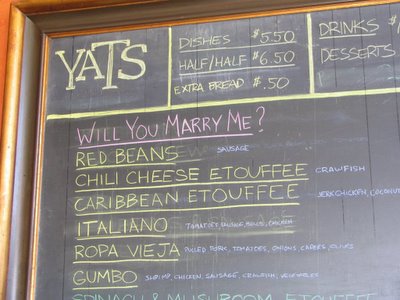 YATS
DISHES $5.50
HALF/HALF $6.50
EXTRA BREAD $.50
DRINKS $
DESSERTS
WILL YOU MARRY ME?
RED BEANS SAUSAGE
CHILI CHEESE ETOUFFEE CRAWFISH
CARIBBEAN ETOUFFEE JERK CHICKEN, COCONUT
ITALIANO TOMATOES, SAUSAGE, CHICKEN
ROPA VIEJA PULLED PORK, TOMATOES, ONIONS, CAPERS, OLIVES
GUMBO SHRIMP, CHICKEN, SAUSAGE, CRAWFISH, VEGETABLES
SPINACH & MUSHROOM ETOUFFEE